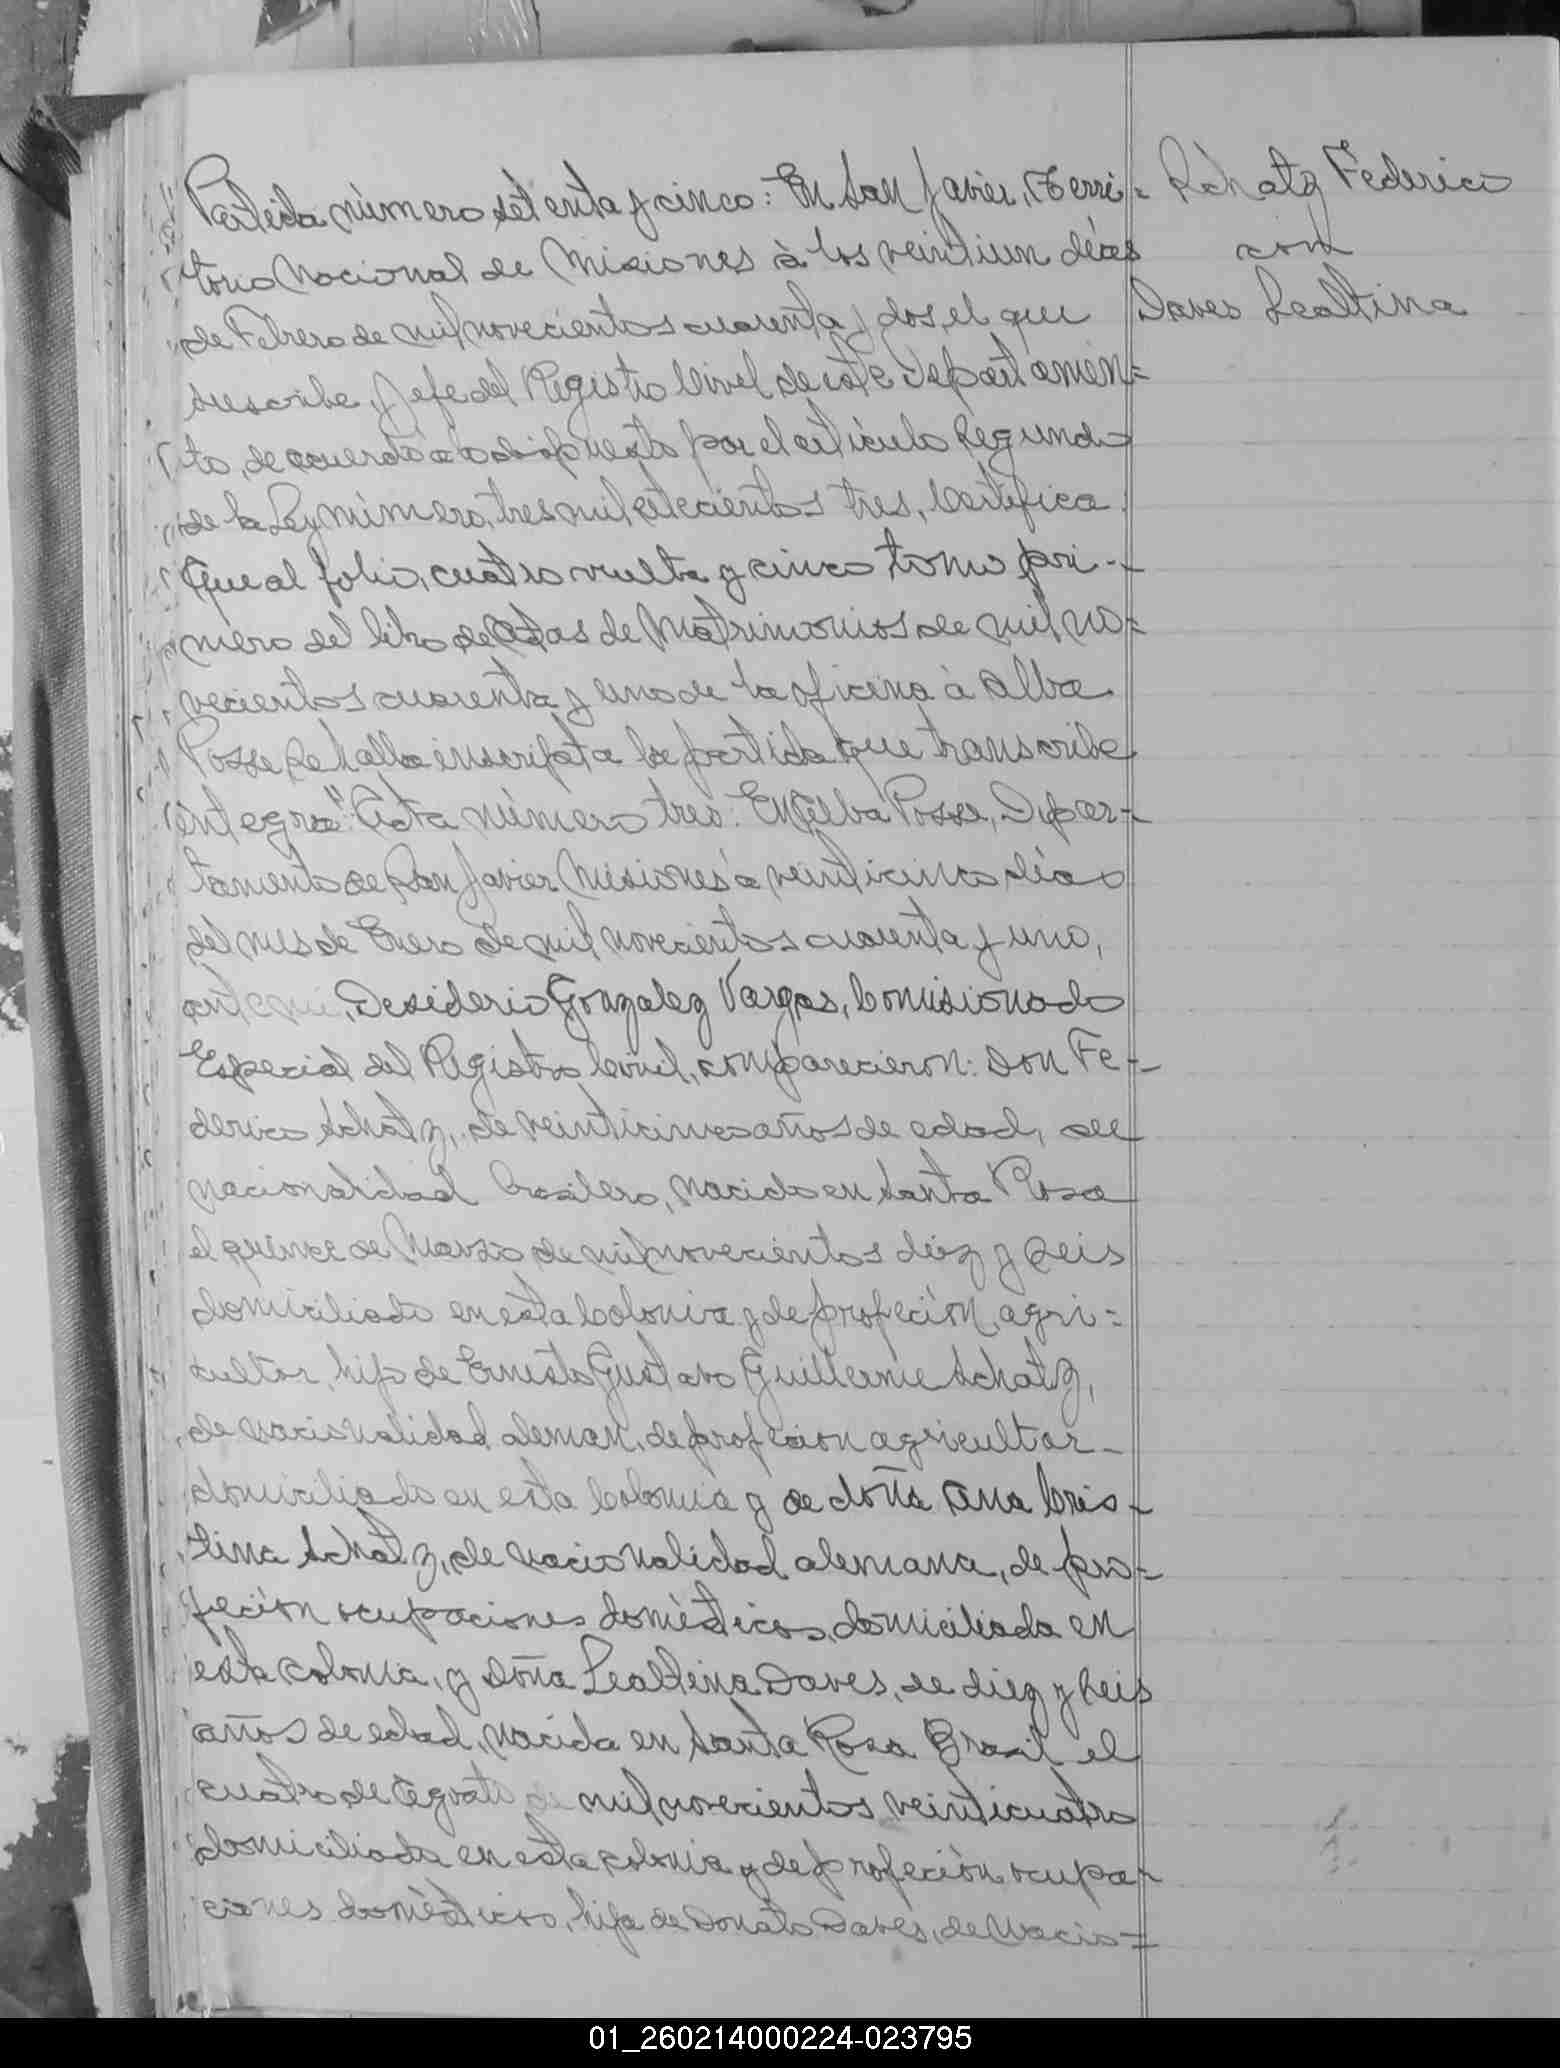 Partida número setenta y cinco: En San Javier, Terri=
torio Nacional de Misiones à los veintiun días
de Febrero de mil novecientos cuarenta y dos, el que
suscribe, Jefe del Registro Civil de este Departamen=
to, de acuerdo a lo dispuesto por el artículo Segundo
de la Ley número, tres mil setecientos tres, Certifica:
Que al folio, cuatro vuelta y cinco tomo pri-
mero del libro de Actas de Matrimonios de mil no=
vecientos cuarenta y uno de la oficina à Alba
Posse se halla inscripta la partida que transcribe
integra: "Acta número tres. En Alba Posse, Depar-
tamento de San Javier Misiones a veinticinco días
del mes de Enero de mil novecientos cuarenta y uno,
ante mi, Desiderio Gonzalez Vargas, Comisionado
Especial del Registro Civil, comparecieron: Don Fe-
derico Schatz, de veinticinco años de edad, de
nacionalidad brasilero, nacido en Santa Rosa
el quince de Marzo de mil novecientos diez y seis
domiciliado en esta Colonia y de profeción, agri=
cultor, hijo de Ernesto Gustavo Guillerme Schatz,
de nacionalidad aleman, de profecion agricultor-
domiciliado en esta Colonia y de doña Ana Cris-
tina Schatz, de nacionalidad alemana, de pro-
feción ocupaciones domésticas, domiciliada en
esta colonia, y doña Lealtina Daves, de diez y seis
años de edad, nacida en Santa Rosa Brasil el
cuatro de Agosto de mil novecientos veinticuatro
domiciliada en esta colonia y de profeción ocupa-
ciones domésticas, hija de Donato Daves, de nacio=
Schatz Federico
con
Daves Lealtina
01_260214000224-023795